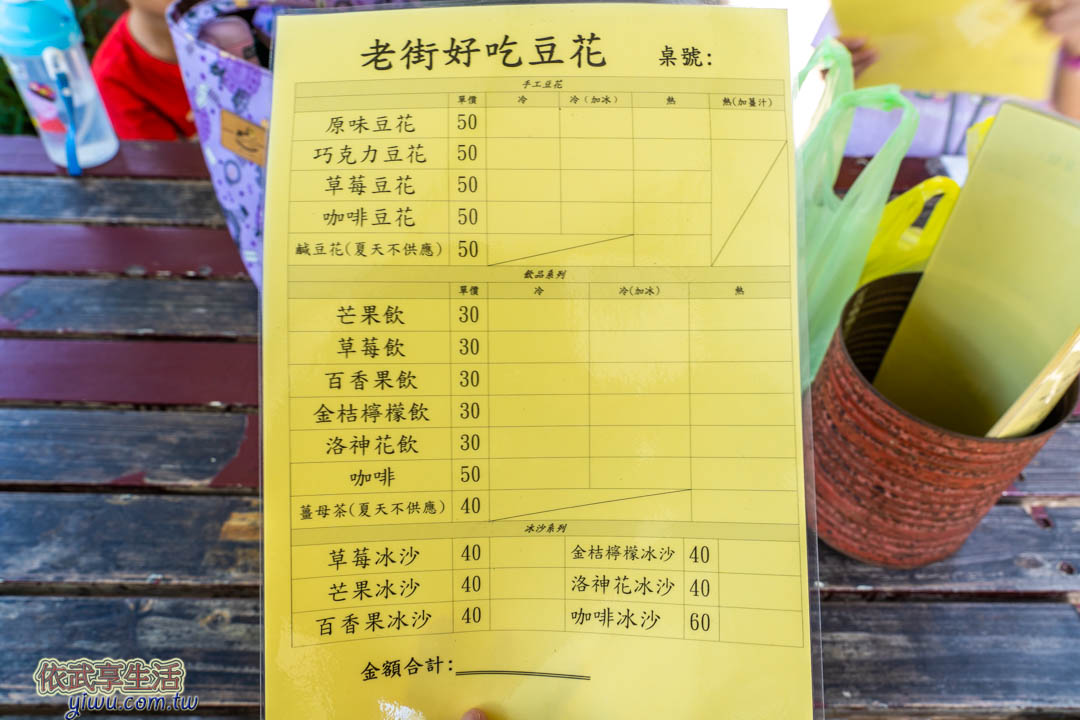 老街好吃豆花 桌號:
手工豆花
單價 冷 冷(加冰) 熱 熱(加薑汁)
原味豆花 50
巧克力豆花 50
草莓豆花 50
咖啡豆花 50
鹹豆花(夏天不供應) 50
飲品系列
單價 冷 冷(加冰) 熱
芒果飲 30
草莓飲 30
百香果飲 30
金桔檸檬飲 30
洛神花飲 30
咖啡 50
薑母茶(夏天不供應) 40
冰沙系列
草莓冰沙 40 金桔檸檬冰沙 40
芒果冰沙 40 洛神花冰沙 40
百香果冰沙 40 咖啡冰沙 60
金額合計:
依武享生活
yiwu.com.tw